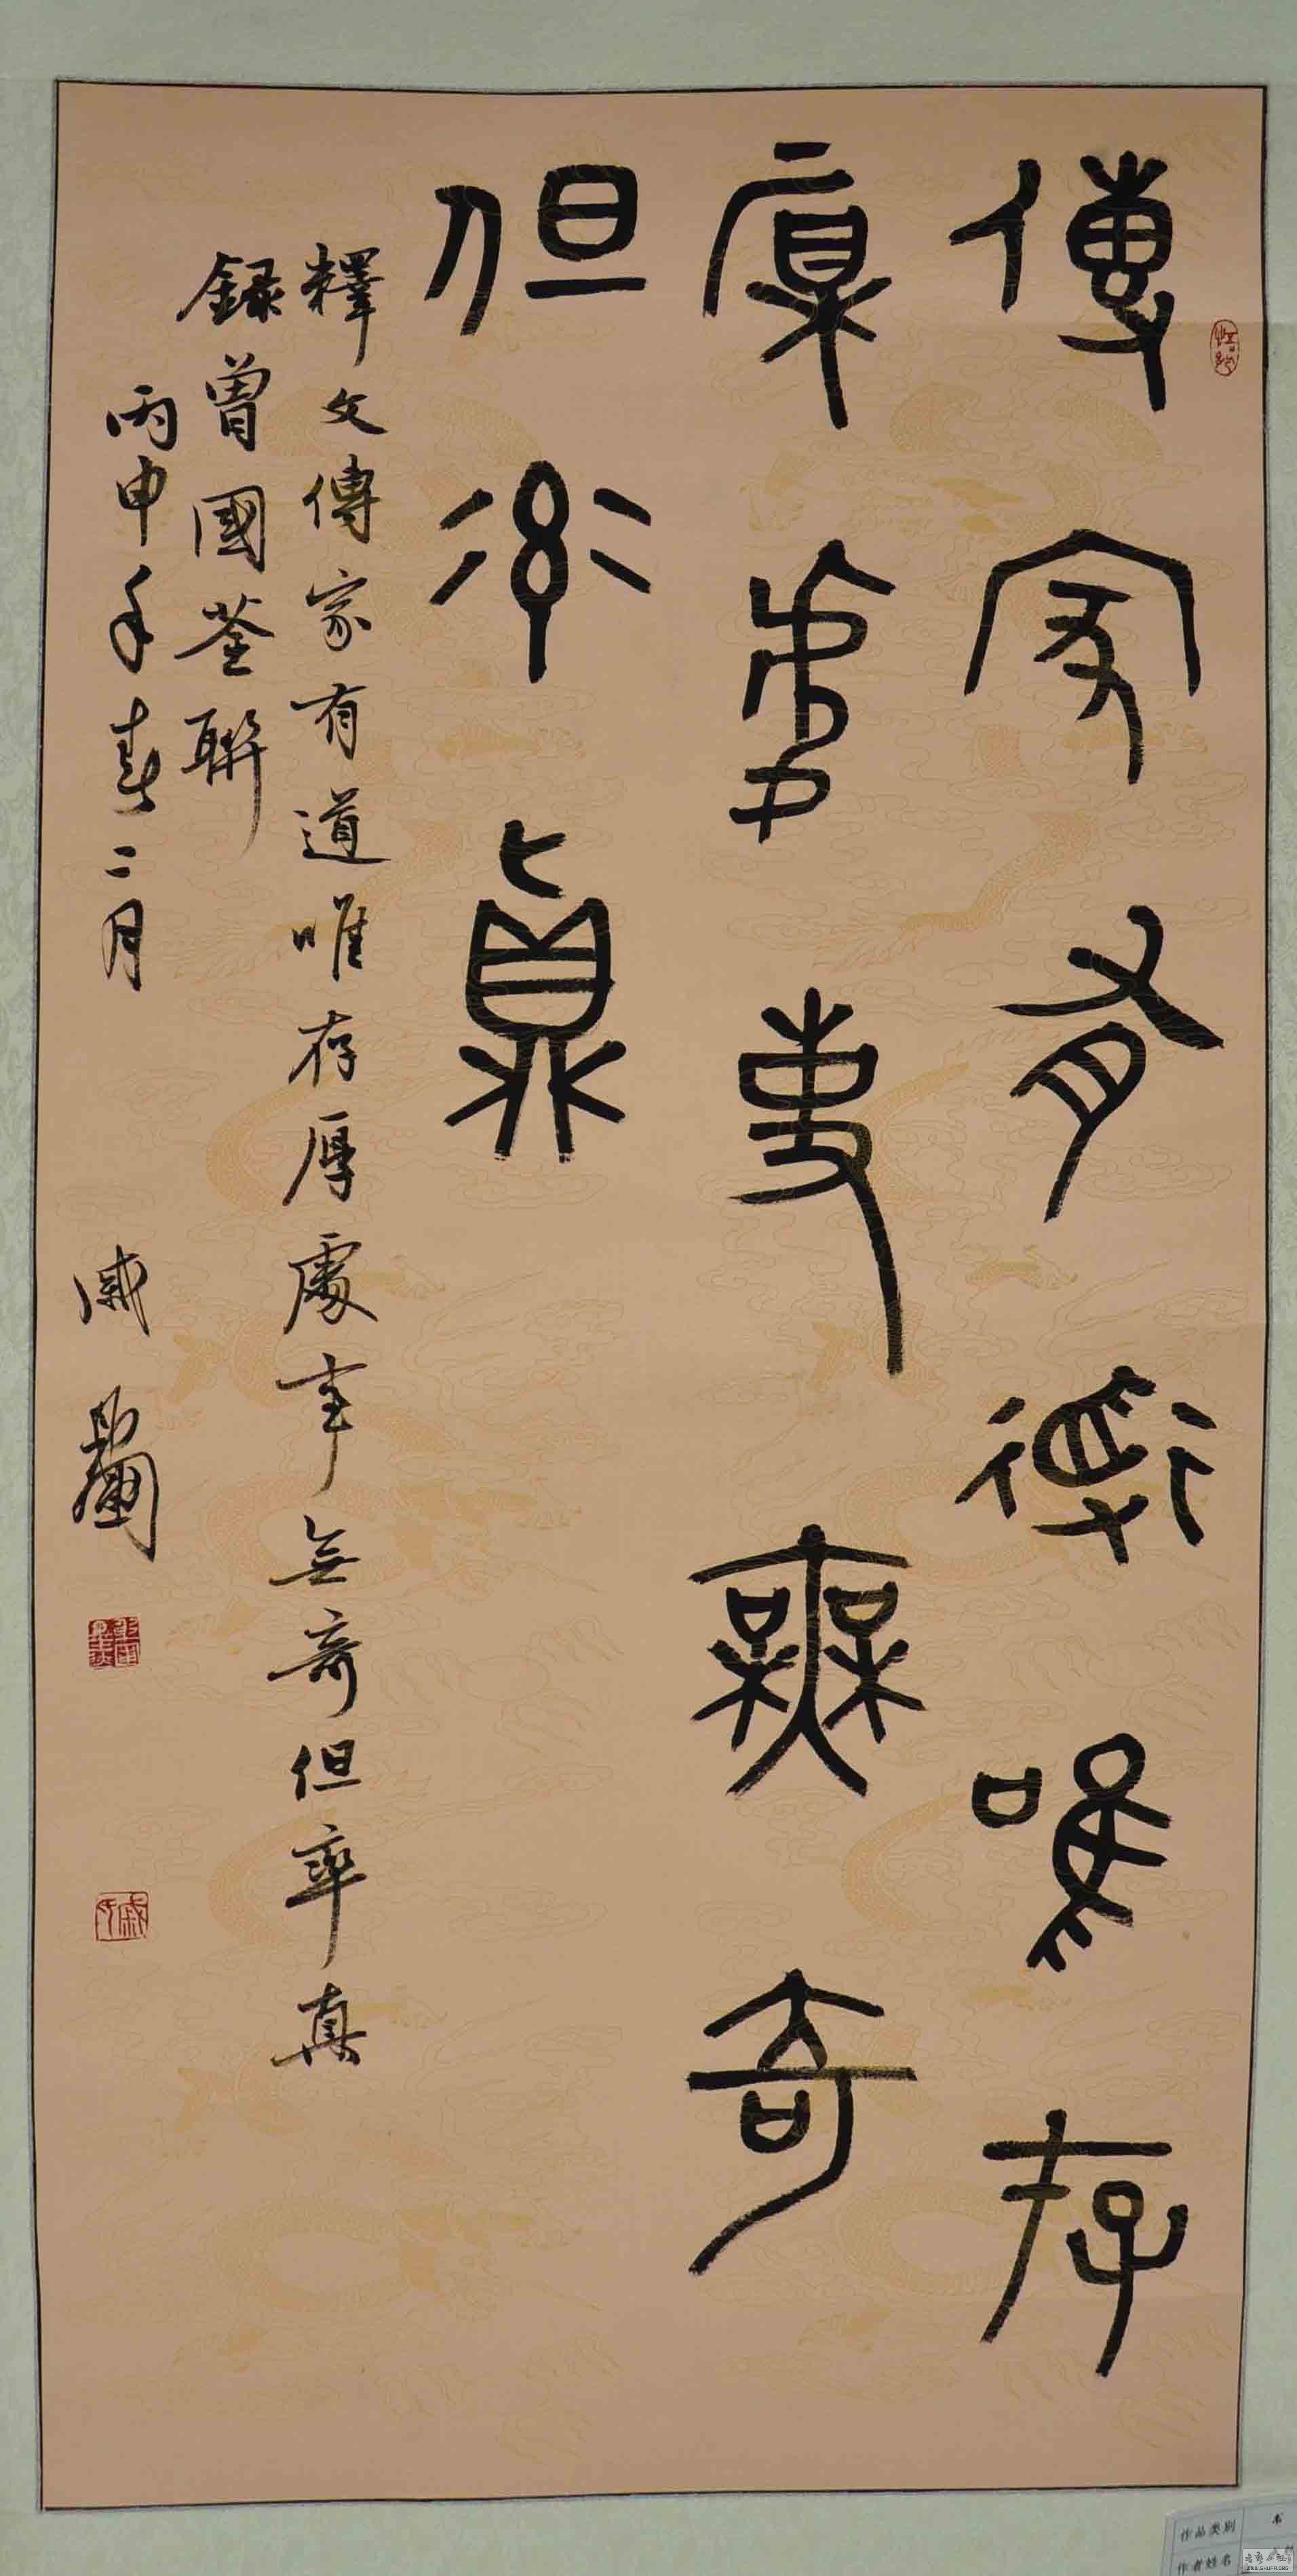 傳家有道唯存
厚處事無奇
但率真
釋文傳家有道唯存厚處事無奇但率真
錄曾國荃聯
丙申年春二月
戚
戚
作品类别 书
作者姓名